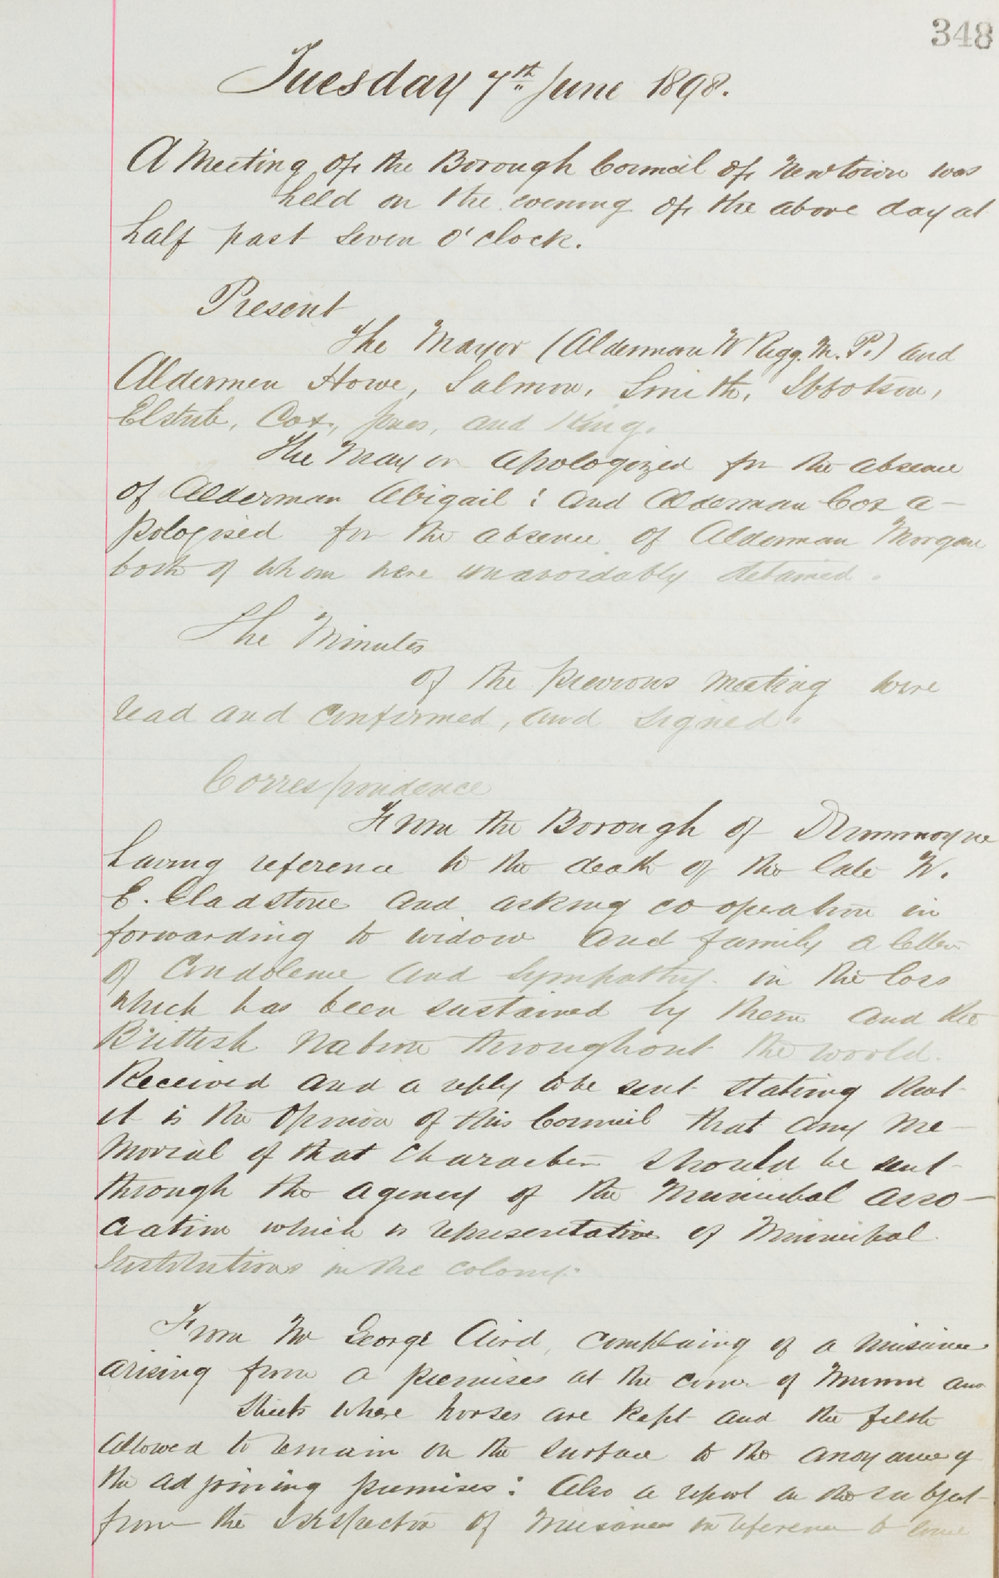 348
Tuesday 7th June 1898.
A Meeting of the Borough Council of Newtown was
held on the evening of the above day at
half past seven o'clock.
Present
The Mayor (Alderman W Rigg. M. P.) and
Aldermen Howe, Salmon, Smith, Ibbotson,
Elstub, Cox, Ives, and King.
The Mayor apologized for the absence
of Alderman Abigail: and Alderman Cox a-
pologised for the absence of Alderman Morgan
both of whom were unavoidably detained.
The Minutes
of the previous meeting were
read and confirmed, and signed.
Correspondence
From the Borough of Drummoyne
having reference to the death of the late W.
E. Gladstone and asking co operation in
forwarding to widow and family a letter
of Condolence and Sympathy in the loss
which has been sustained by them and the
Brittish Nation throughout the world.
Received and a reply to be sent stating that
it is the opinion of this Council that any me-
morial of that character should be sent
through the agency of the Municipal Asso-
ciation which is representative of Municipal
Institutions in the colony.
From Mr George Aird, complaing of a nuisance
arising from a premises at the corner of and
Streets where horses are kept and the filth
allowed to remain on the surface to the anoyance of
the adjoining premises: Also a report on the subject
from the Inspector of Nuisances in reference to